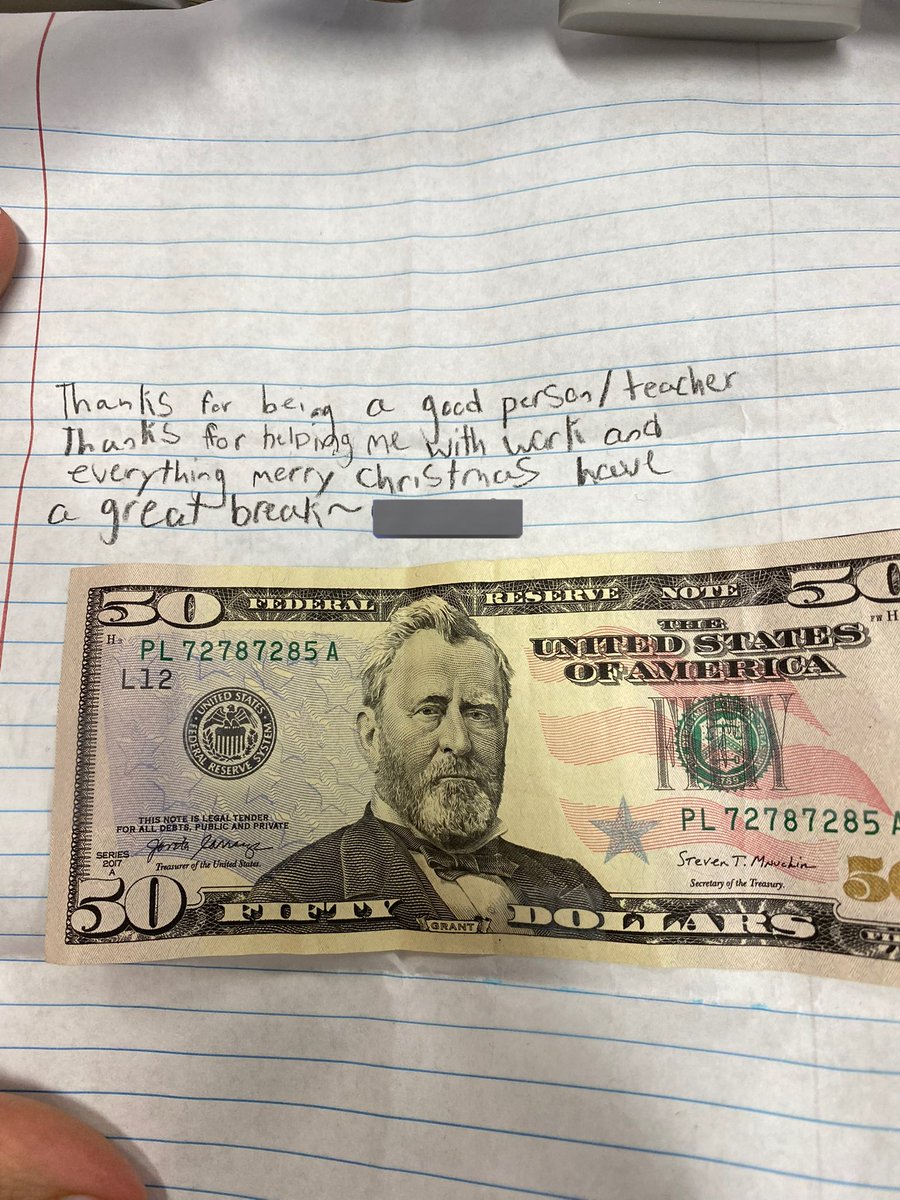 Thanks for being a good person/teacher
Thanks for helping me with work and
everything merry christmas have
a great break~
50 FEDERAL RESERVE NOTE 50
THE
UNITED STATES
OF AMERICA
H3
PL 72787285 A
L12
UNITED STATES FEDERAL RESERVE SYSTEM
FW H
PL 72787285 A
THIS NOTE IS LEGAL TENDER
FOR ALL DEBTS, PUBLIC AND PRIVATE
Treasurer of the United States.
SERIES
2017
A
Steven T. Mnuchin
Secretary of the Treasury.
50
50 FIFTY GRANT DOLLARS